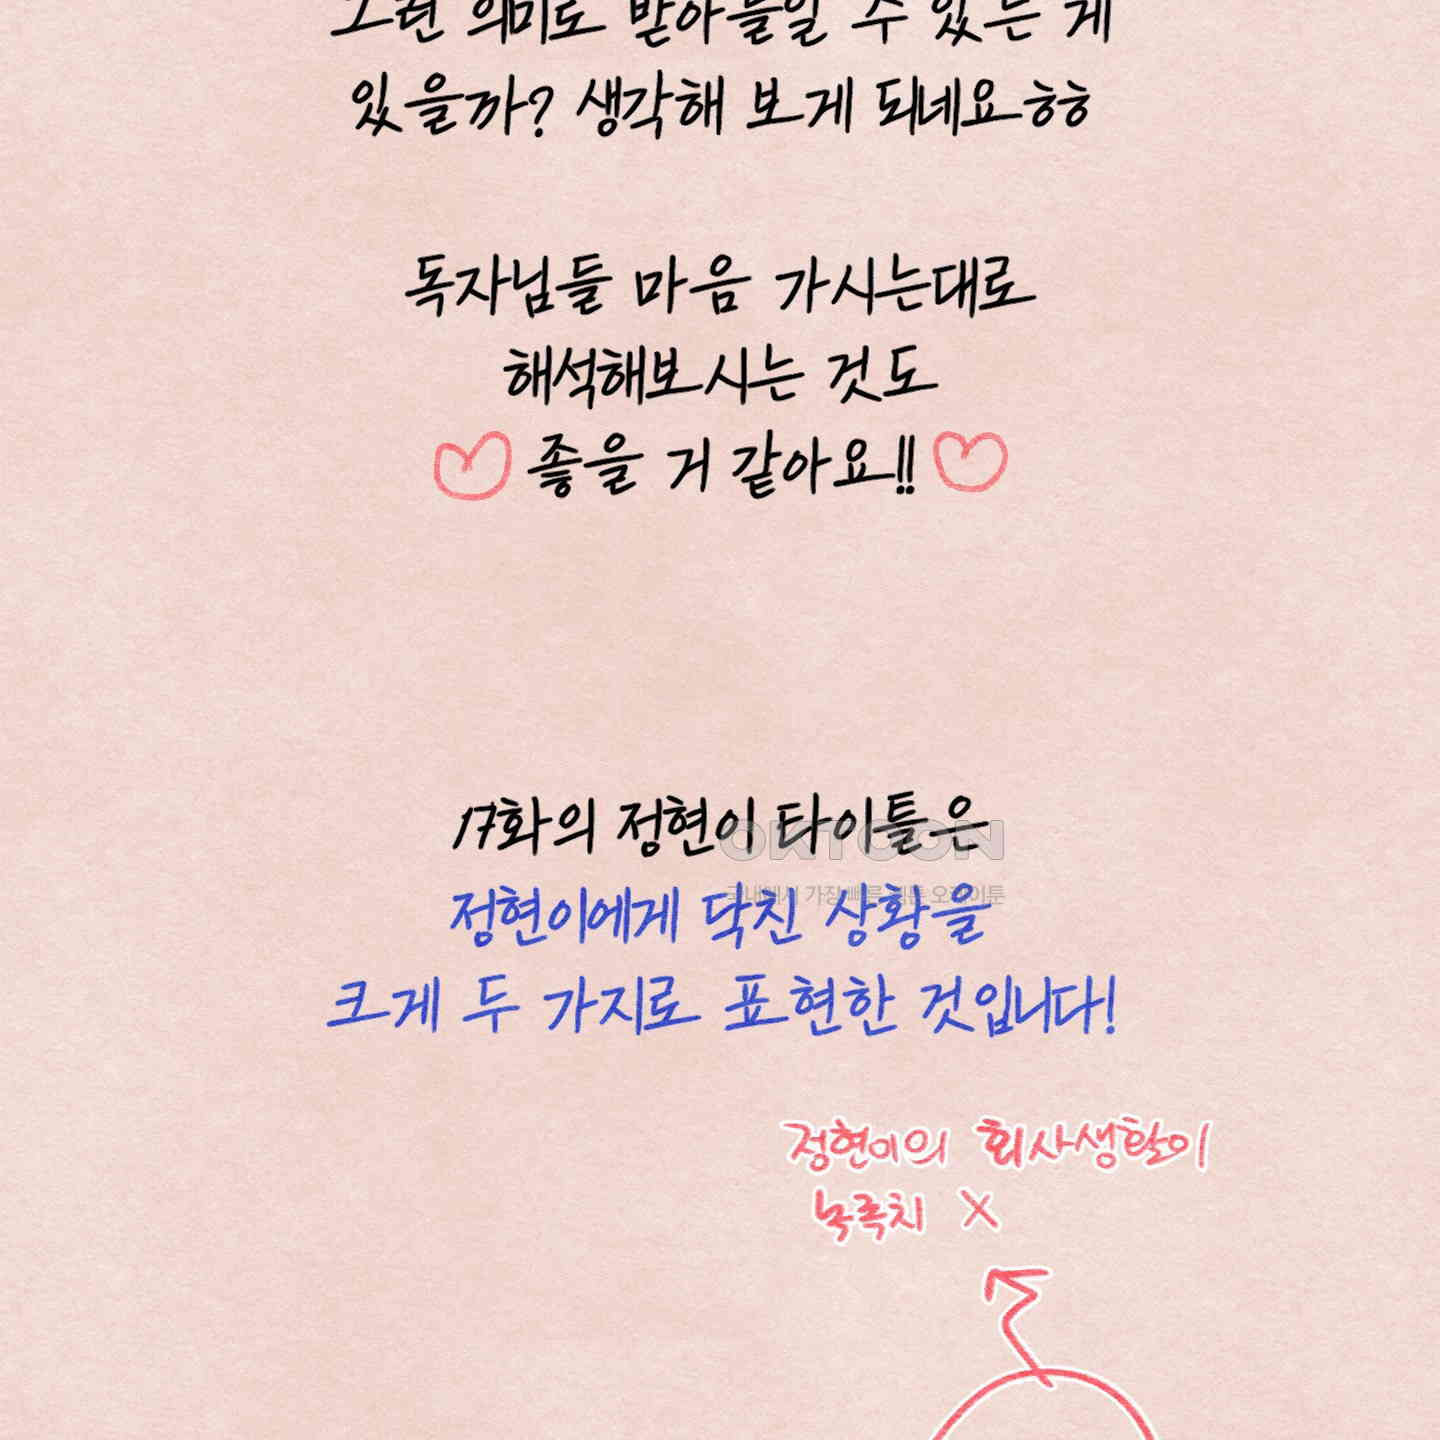 그런 의미로 받아들일 수 있는 게
있을까? 생각해 보게 되네요ㅎㅎ
독자님들 마음 가시는대로
해석해보시는 것도
좋을 거 같아요!!
17화의 정현이 타이틀은
OKTOON
국내에서 가장 빠른 웹툰 오케이툰
정현이에게 닥친 상황을
크게 두 가지로 표현한 것입니다!
정현이의 회사생활이
녹록치 X